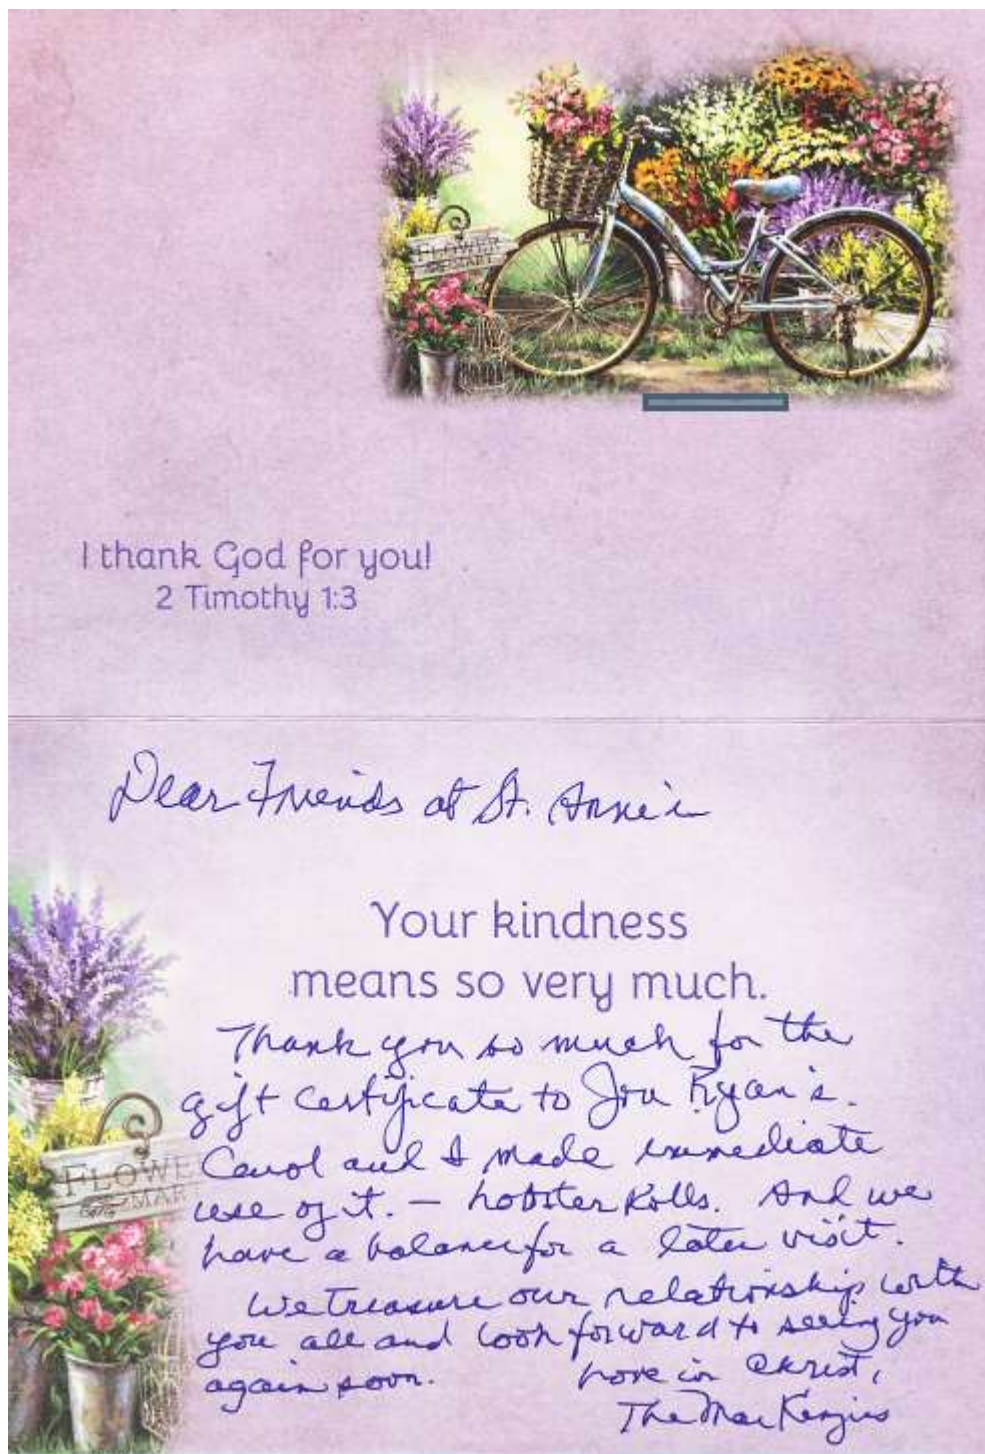 FLOWER
MART
I thank God for you!
2 Timothy 1:3
Dear Friends at St. Anne's
Your kindness
means so very much.
Thank you so much for the
gift certificate to Jon Ryan's.
Carol and I made immediate
use of it. – Lobster Rolls. And we
have a balance for a later visit.
We treasure our relationship with
you all and look forward to seeing you
again soon.
Love in Christ,
The MacKenzies
FLOWE
MAR